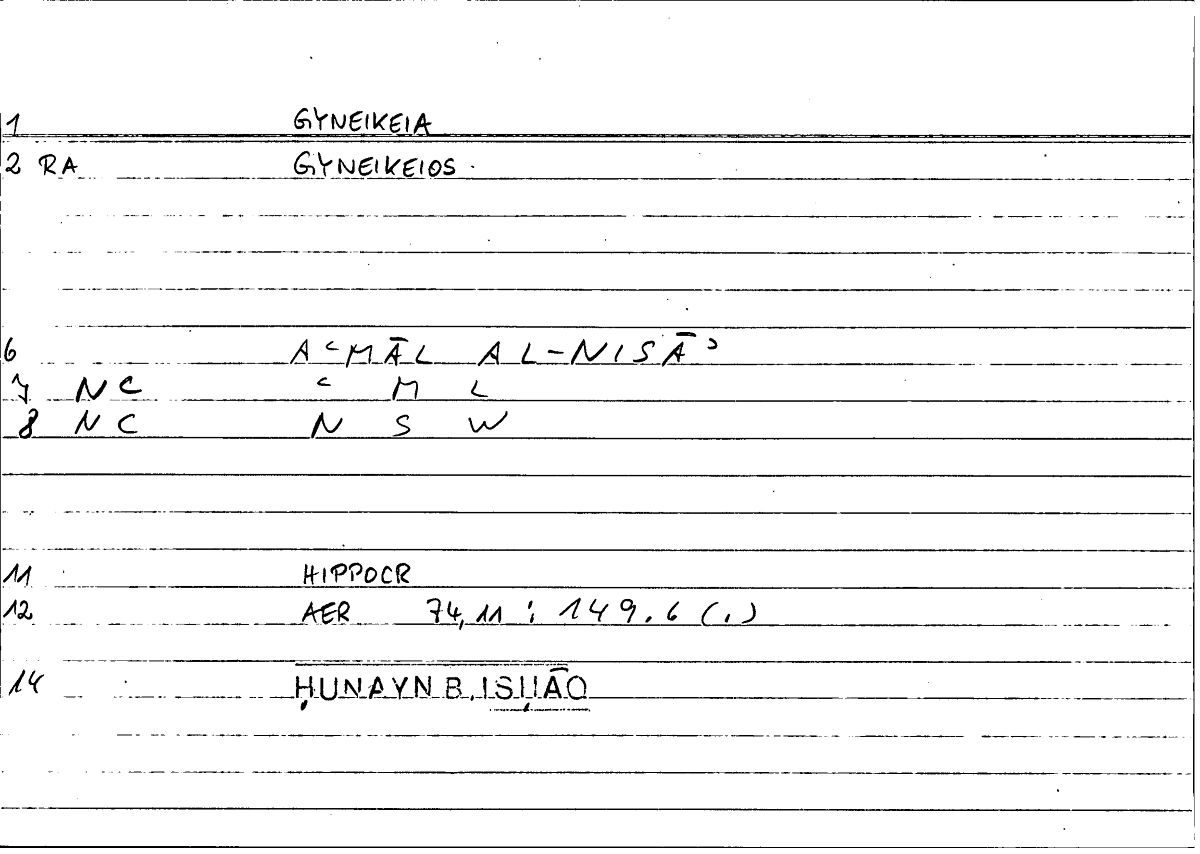 1 GYNEIKEIA
2 RA GYNEIKEIOS.
6 AʿMĀL AL-NISĀʾ
7 NC ʿ M L
8 NC N S W
11 HIPPOCR
12 AER 74,11 : 149.6 (.)
14 ḤUNAYN B. ISḤĀQ